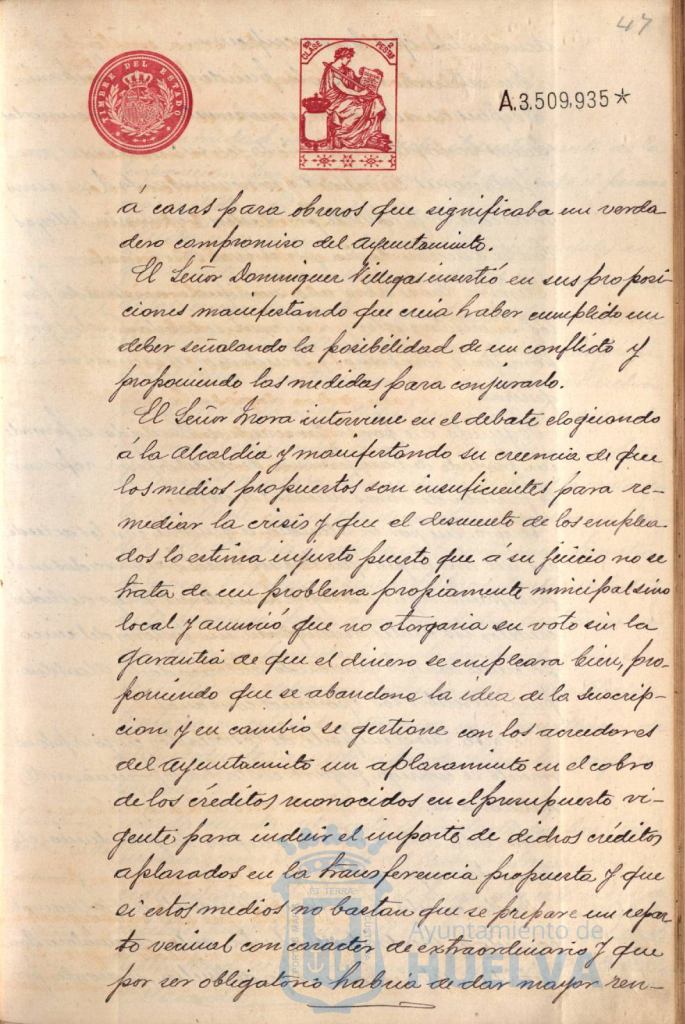 47
TIMBRE DEL ESTADO
10ª CLASE 2 PESTAS
A.3.509,935*
á casas para obreros que significaba un verda
dero compromiso del Ayuntamiento.
El Señor Dominguez Villegas insistió en sus proposi-
ciones manifestando que creia haber cumplido un
deber señalando la posibilidad de un conflicto y
proponiendo las medidas para conjurarlo.
El Señor Mora interviene en el debate elogiando
á la Alcaldia y manifestando su creencia de que
los medios propuestos son insuficientes para re-
mediar la crisis y que el descuento de los emplea
dos lo estima injusto puesto que á su juicio no se
trata de un problema propiamente municipal sino
local y anunció que no otorgaria su voto sin la
garantia de que el dinero se empleara bien, pro-
poniendo que se abandone la idea de la suscrip-
cion y en cambio se gestione con los acreedores
del Ayuntamiento un aplazamiento en el cobro
de los créditos reconocidos en el presupuesto vi-
gente para incluir el importe de dichos créditos
aplazados en la transferencia propuesta y que
si estos medios no bastan que se prepare un repar-
to vecinal con caracter de extraordinario y que
por ser obligatorio habria de dar mayor ren-
Ayuntamiento de
HUELVA